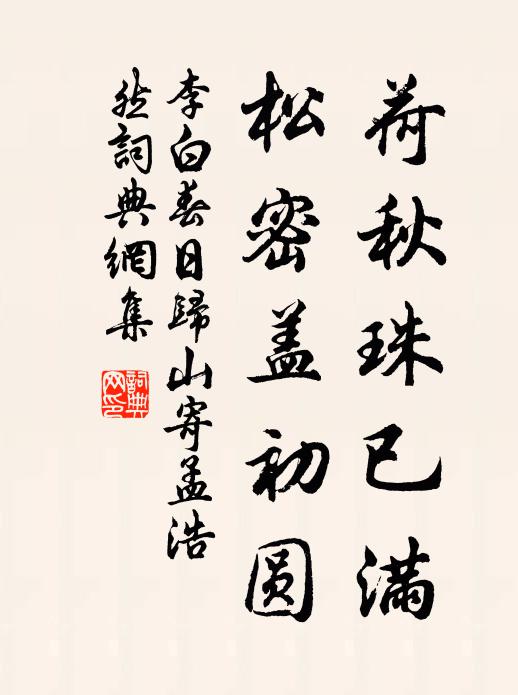 荷秋珠已满
松密盖初圆
李白春日歸山寄孟浩
然詞典網集
詞典
网印